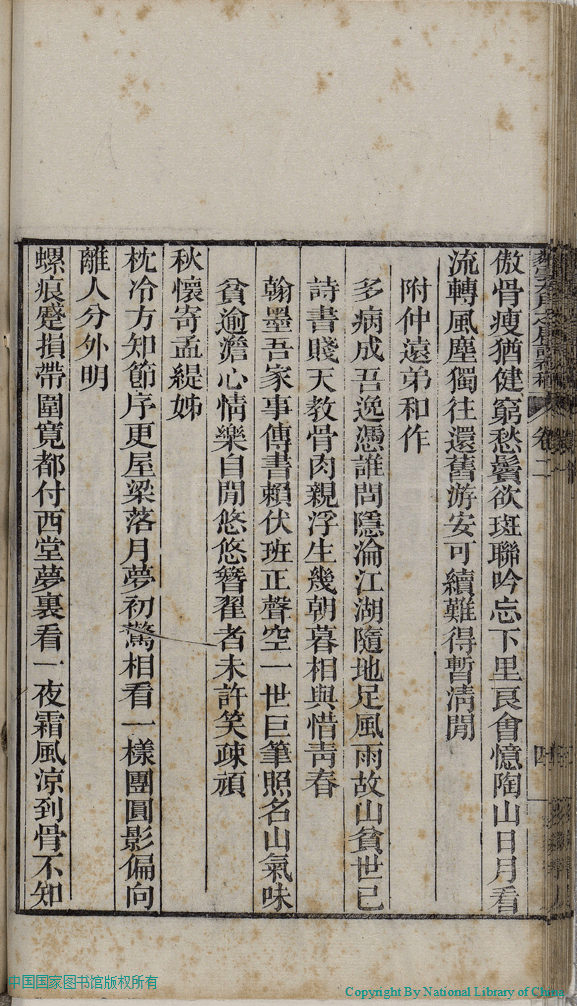 傲骨瘦猶健窮愁鬢欲斑聯吟忘下里良會憶陶山日月看
流轉風塵獨往還舊游安可續難得暫淸閒
附仲遠弟和作
多病成吾逸憑誰問隱淪江湖隨地足風雨故山貧世已
詩書賤天教骨肉親浮生幾朝暮相與惜靑春
翰墨吾家事傳書賴伏班正聲空一世巨筆照名山氣味
貧逾澹心情樂自閒悠悠簪翟者未許笑疎頑
秋懷寄孟緹姊
枕冷方知節序更屋梁落月夢初驚相看一樣團圓影偏向
離人分外明
螺痕蹙損帶圍寬都付西堂夢裏看一夜霜風涼到骨不知
卷二
四
中国国家图书馆版权所有
Copyright By National Library of China